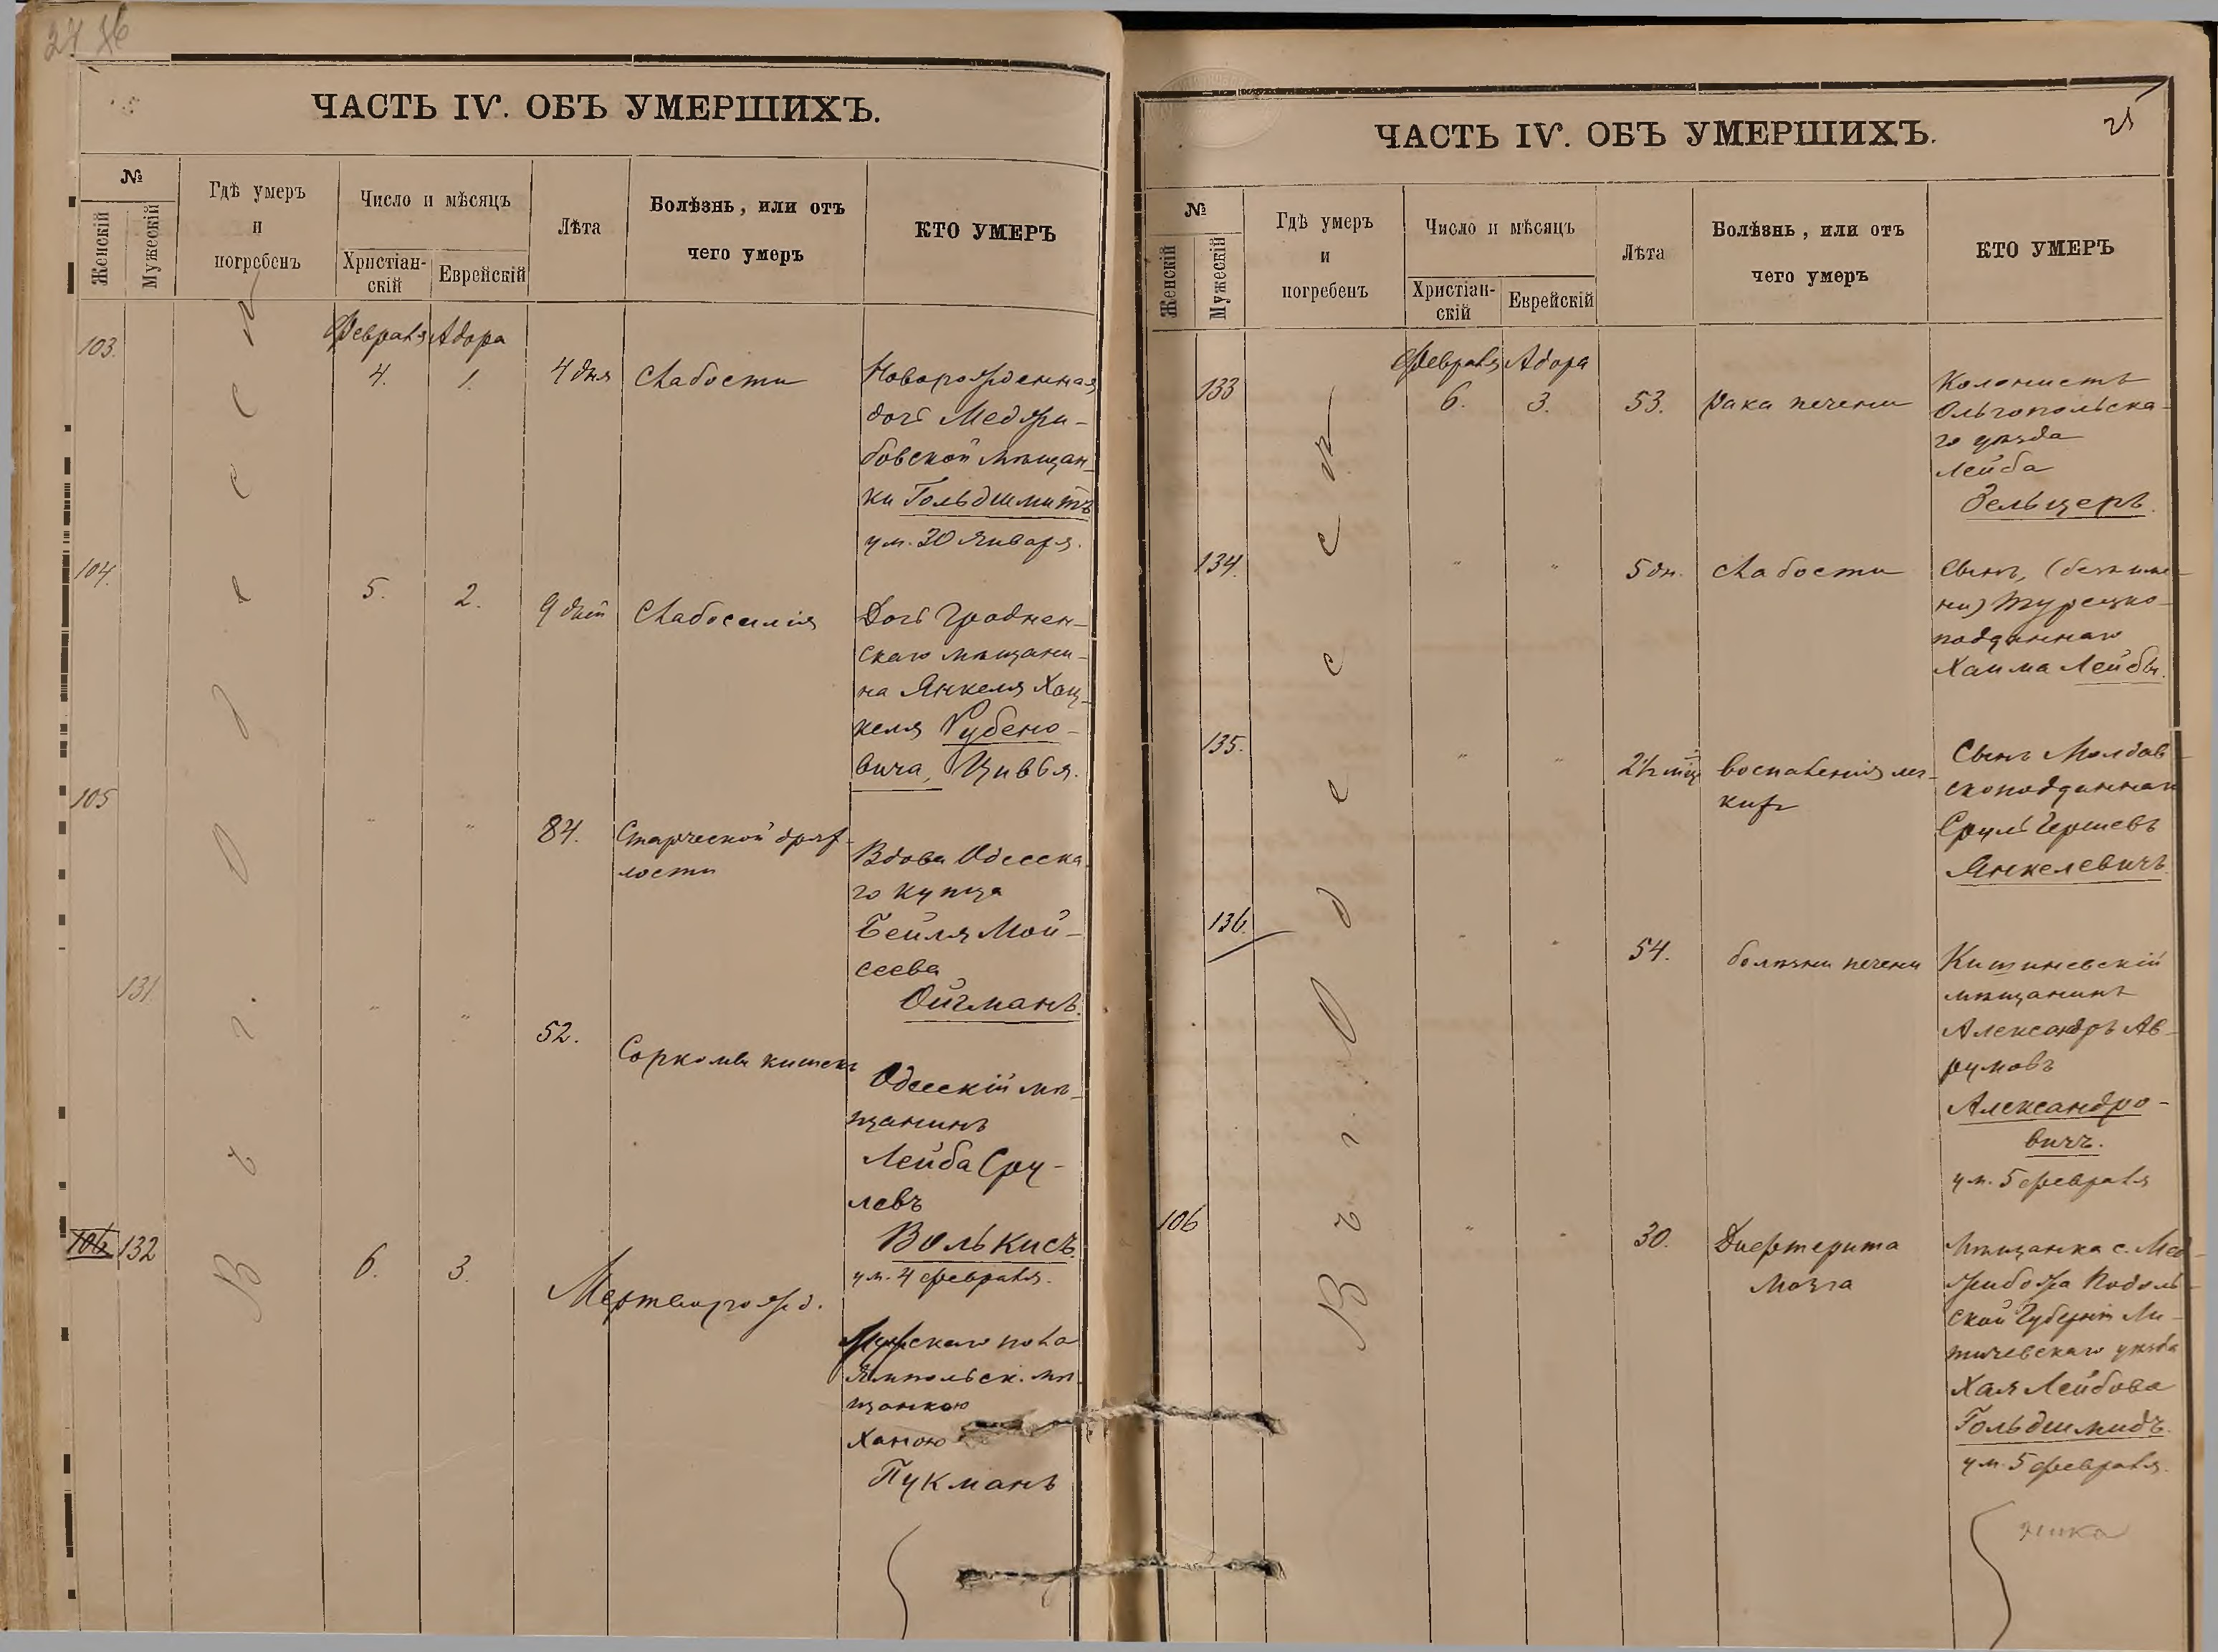 ЧАСТЬ IV. ОБЪ УМЕРШИХЪ.
№
Женскій
Мужескій
Гдѣ умеръ
и
погребенъ
Число и мѣсяцъ
Христіан-
скій
Еврейскій
Лѣта
Болѣзнь, или отъ
чего умеръ
КТО УМЕРЪ
В г. Одессѣ
Февраля Адара
103. 4. 1. 4 дня Слабости
Новорожденная
дочь Меджи-
бовской мѣщан-
ки Гольдшмитъ
ум. 30 января.
104. 5. 2. 9 дней Слабосилія
Дочь Гроднен-
скаго мѣщани-
на Янкеля Хац-
келя Рубено-
вича, Цивья.
105 " " 84. Старческой дрях-
лости
Вдова Одесска-
го купца
Бейля Мой-
сеева
Ойгманъ.
131 " " 52. Саркомы кишекъ
Одесскій мѣ-
щанинъ
Лейба Сру-
левъ
Волькисъ.
ум. 4 февраля.
106 132 6. 3. Мертворожд.
Мужскаго пола
Ямпольск. мѣ-
щанкою
Ханою
Пукманъ
ЧАСТЬ IV. ОБЪ УМЕРШИХЪ.
25
№
Женскій
Мужескій
Гдѣ умеръ
и
погребенъ
Число и мѣсяцъ
Христіан-
скій
Еврейскій
Лѣта
Болѣзнь, или отъ
чего умеръ
КТО УМЕРЪ
В г. Одессѣ
Февраля Адара
133 6. 3. 53. Рака печени
Колонистъ
Ольгопольска-
го уѣзда
Лейба
Зельцеръ.
134. " " 5 дн. Слабости
Сынъ, (безъ име-
ни) Турецко-
подданнаго
Хаима Лейбы.
135. " " 2½ мѣц воспаленія лег-
кихъ
Сынъ Молдав-
скоподданнаго
Сруль Гершевъ
Янкелевичъ.
136. " " 54. болѣзни печени
Кишиневскій
мѣщанинъ
Александръ Ав-
румовъ
Александро-
вичъ.
ум. 5 февраля
106 " " 30. Дифтерита
мозга
Мѣщанка с. Мед-
жибожа Подоль-
ской Губерніи Ли-
тичевскаго уѣзда
Хая Лейбова
Гольдшмидъ.
ум. 5 февраля.